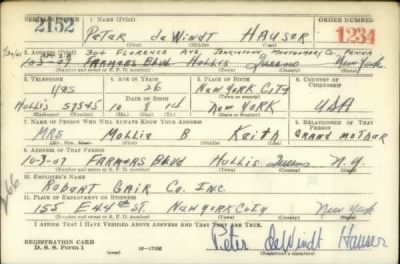 SERIAL NUMBER 1. NAME (Print) ORDER NUMBER
2152 Peter deWindt HAUSER 1234
(First) (Middle) (Last)
2. ADDRESS (Print) 304 FLORENCE AVE, JENKINTOWN MONTGOMERY CO. PENNA
10-3-07 FARMERS BLVD Hollis Queens New York
(Number and street or R. F. D. number) (Town) (County) (State)
3. TELEPHONE 4. AGE IN YEARS 5. PLACE OF BIRTH 6. COUNTRY OF CITIZENSHIP
26 NEW YORK CITY
Hollis 57545 DATE OF BIRTH (Town or county)
10 8 New YORK USA
(Exchange) (Number) (Mo.) (Day) (Yr.) (State or country)
7. NAME OF PERSON WHO WILL ALWAYS KNOW YOUR ADDRESS 8. RELATIONSHIP OF THAT PERSON
MRS Mollie B Keith GRAND MOTHER
(Mr., Mrs., Miss) (First) (Middle) (Last)
9. ADDRESS OF THAT PERSON
10-3-07 FARMERS Blvd Hollis Queens N.Y.
(Number and street or R. F. D. number) (Town) (County) (State)
10. EMPLOYER'S NAME
Robert GAIR Co. INC.
11. PLACE OF EMPLOYMENT OR BUSINESS
155 E 44th ST. NEW YORK CITY New York
(Number and street or R. F. D. number) (Town) (County) (State)
I AFFIRM THAT I HAVE VERIFIED ABOVE ANSWERS AND THAT THEY ARE TRUE.
REGISTRATION CARD
D. S. S. Form 1 Peter deWindt Hauser
(over) (Registrant's signature)